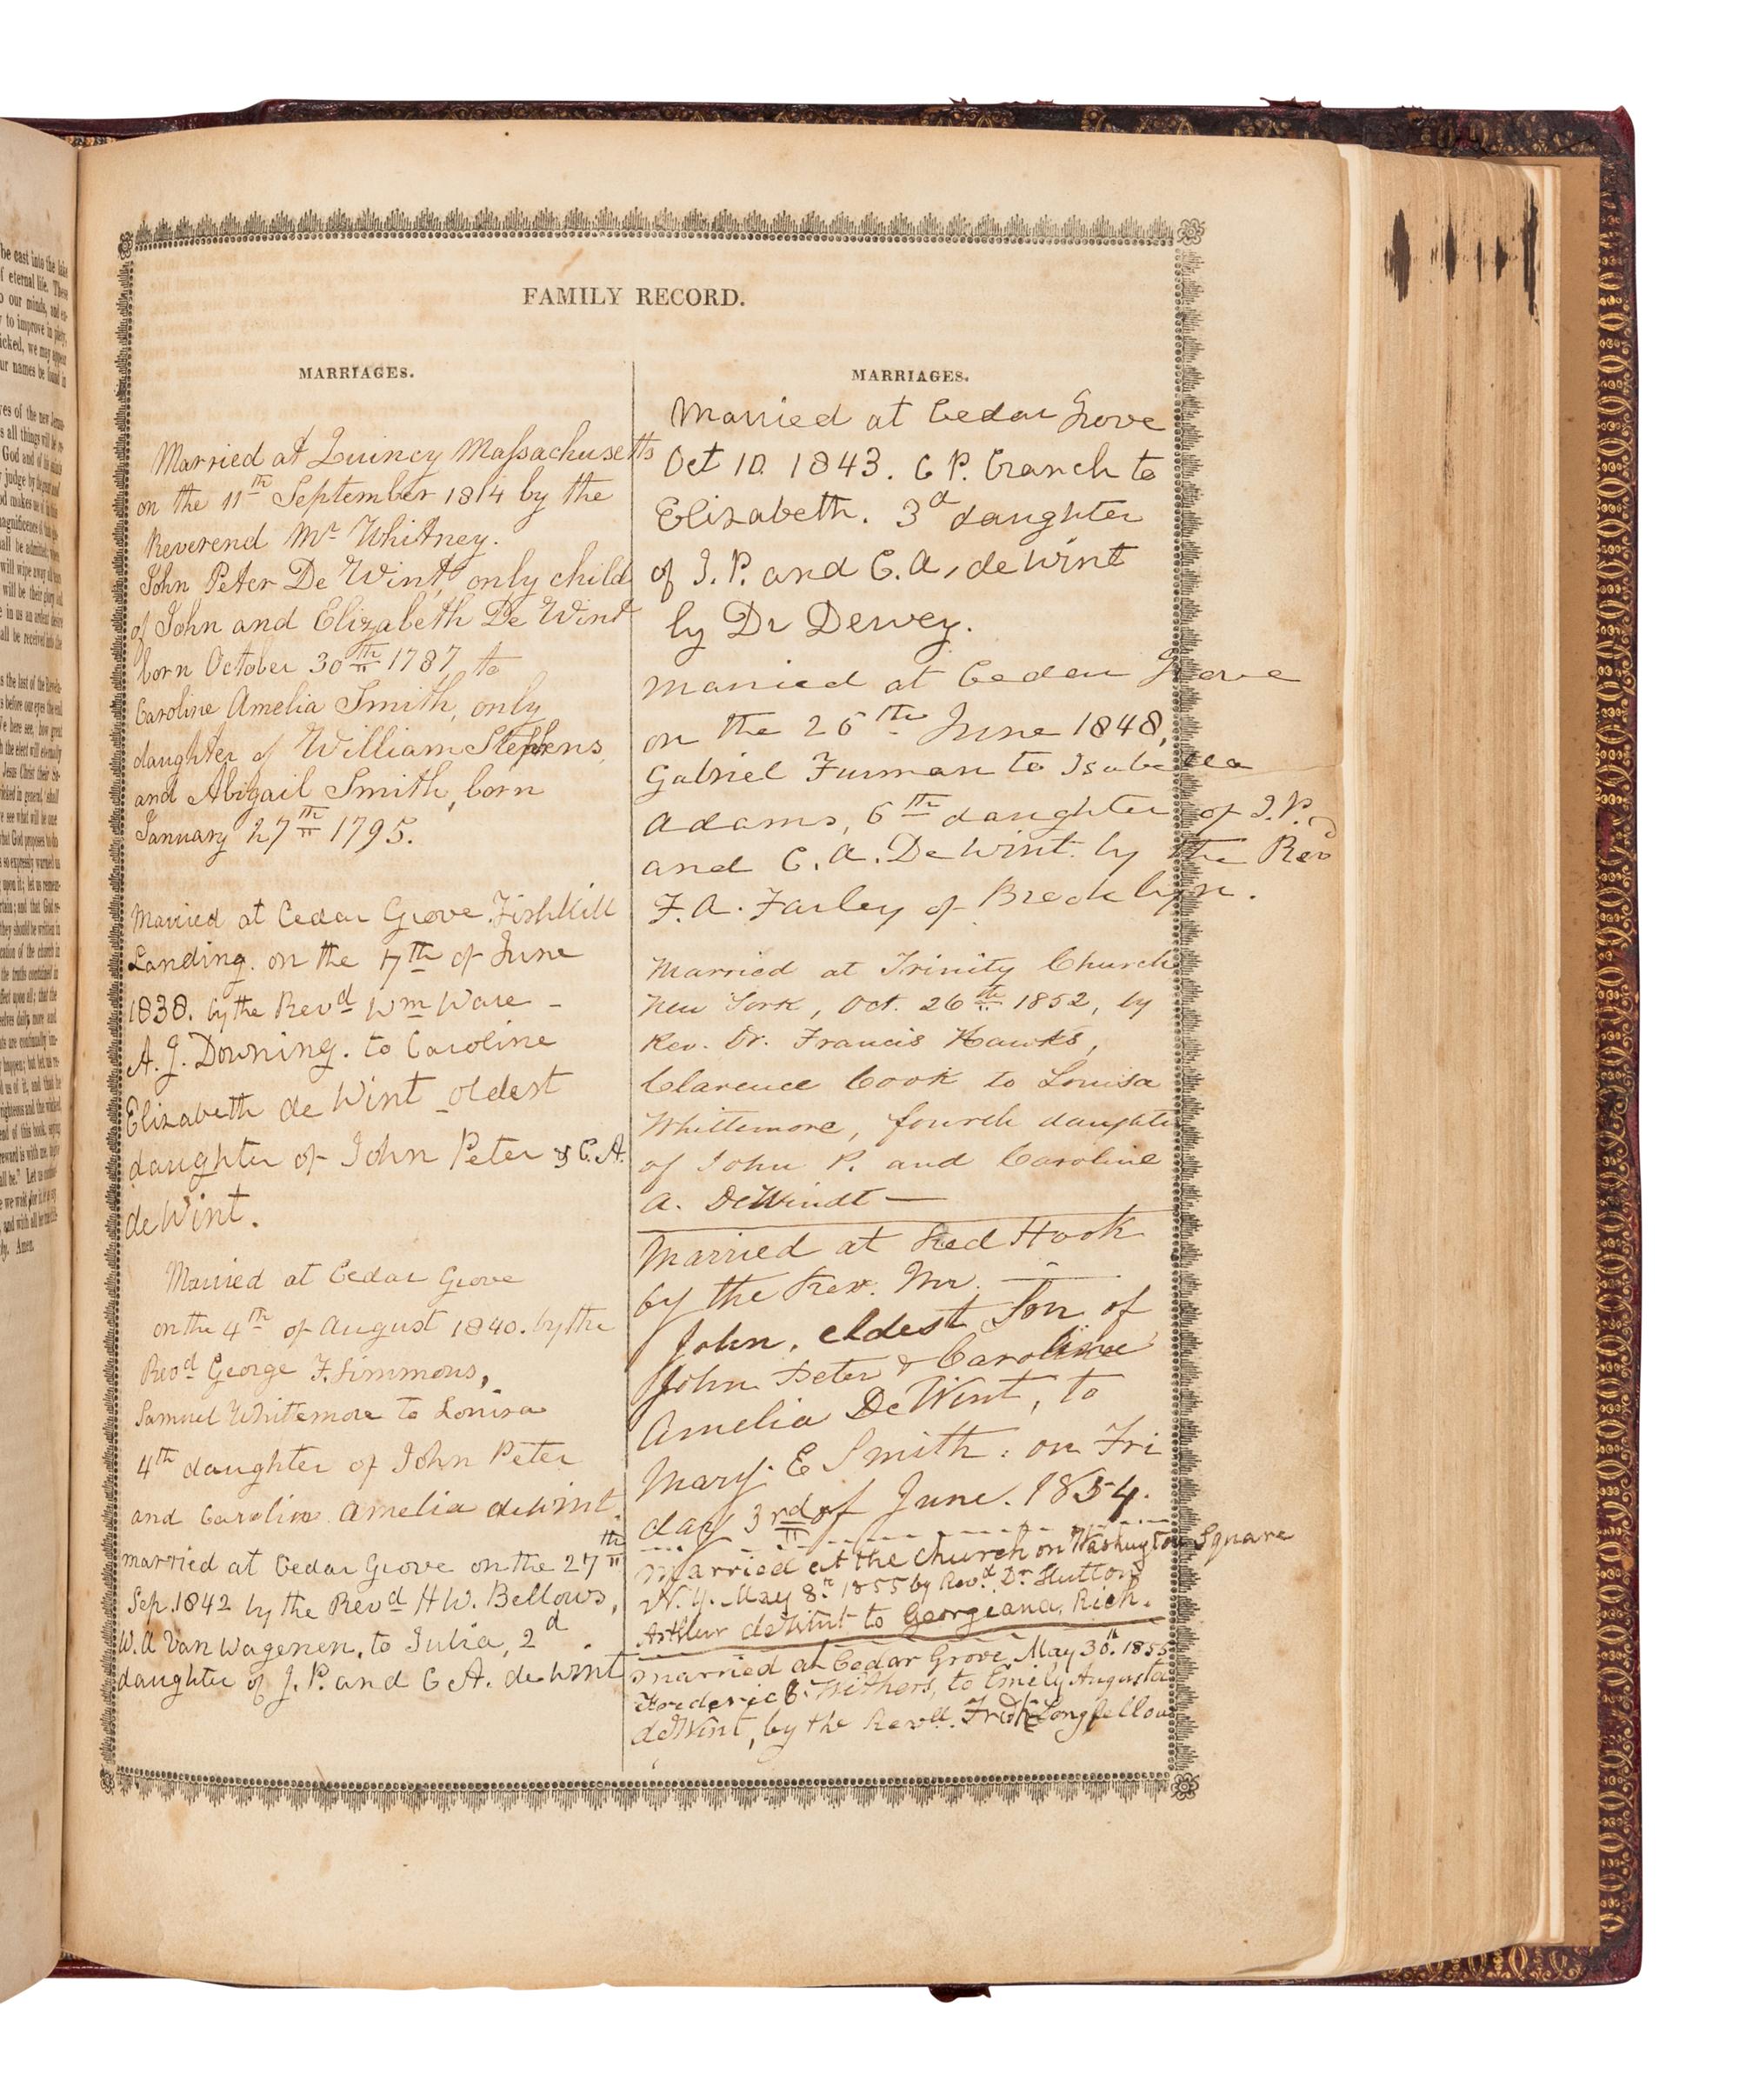 FAMILY RECORD.
MARRIAGES.
Married at Quincy Massachusetts
on the 11th September 1814 by the
Reverend Mr Whitney.
John Peter De Wint, only child
of John and Elizabeth De Wint
born October 30th 1787, to
Caroline Amelia Smith, only
daughter of William Stephens,
and Abigail Smith, born
January 27th 1795.
Married at Cedar Grove Fishkill
Landing. on the 7th of June
1838. by the Revd Wm Ware -
A. J. Downing. to Caroline
Elizabeth de Wint oldest
daughter of John Peter & C. A.
de Wint.
Married at Cedar Grove
on the 4th of August 1840. by the
Revd George F. Simmons,
Samuel Whittemore to Louisa
4th daughter of John Peter
and Caroline Amelia de Wint.
married at Cedar Grove on the 27th
Sep. 1842 by the Revd H W. Bellows,
W. A Van Wagenen, to Julia, 2d
daughter of J. P. and C A. de Wint
MARRIAGES.
Married at Cedar Grove
Oct 10. 1843. C P. Cranch to
Elizabeth. 3d daughter
of J. P. and C. A, de Wint
by Dr Dewey.
Married at Cedar Grove
on the 26th June 1848,
Gabriel Furman to Isabella
Adams, 6th daughter of J. P.
and C. A. De Wint. by the Rev
F. A. Farley of Brooklyn.
Married at Trinity Church
New York, Oct. 26th 1852, by
Rev. Dr. Francis Hawks,
Clarence Cook to Louisa
Whittemore, fourth daughter
of John P. and Caroline
A. DeWindt —
Married at Red Hook
by the Rev. Mr. —
John, eldest Son of
John Peter & Caroline
Amelia De Wint, to
Mary E Smith: on Fri
day 3rd of June. 1854.
Married at the Church on Washington Square
N. Y. May 8th 1855 by Revd. Dr Hutton
Arthur de Wint to Georgeana, Rich.
married at Cedar Grove May 30th 1855
Frederic C. Withers, to Emily Augusta
de Wint, by the Revd. Fredk Longfellow